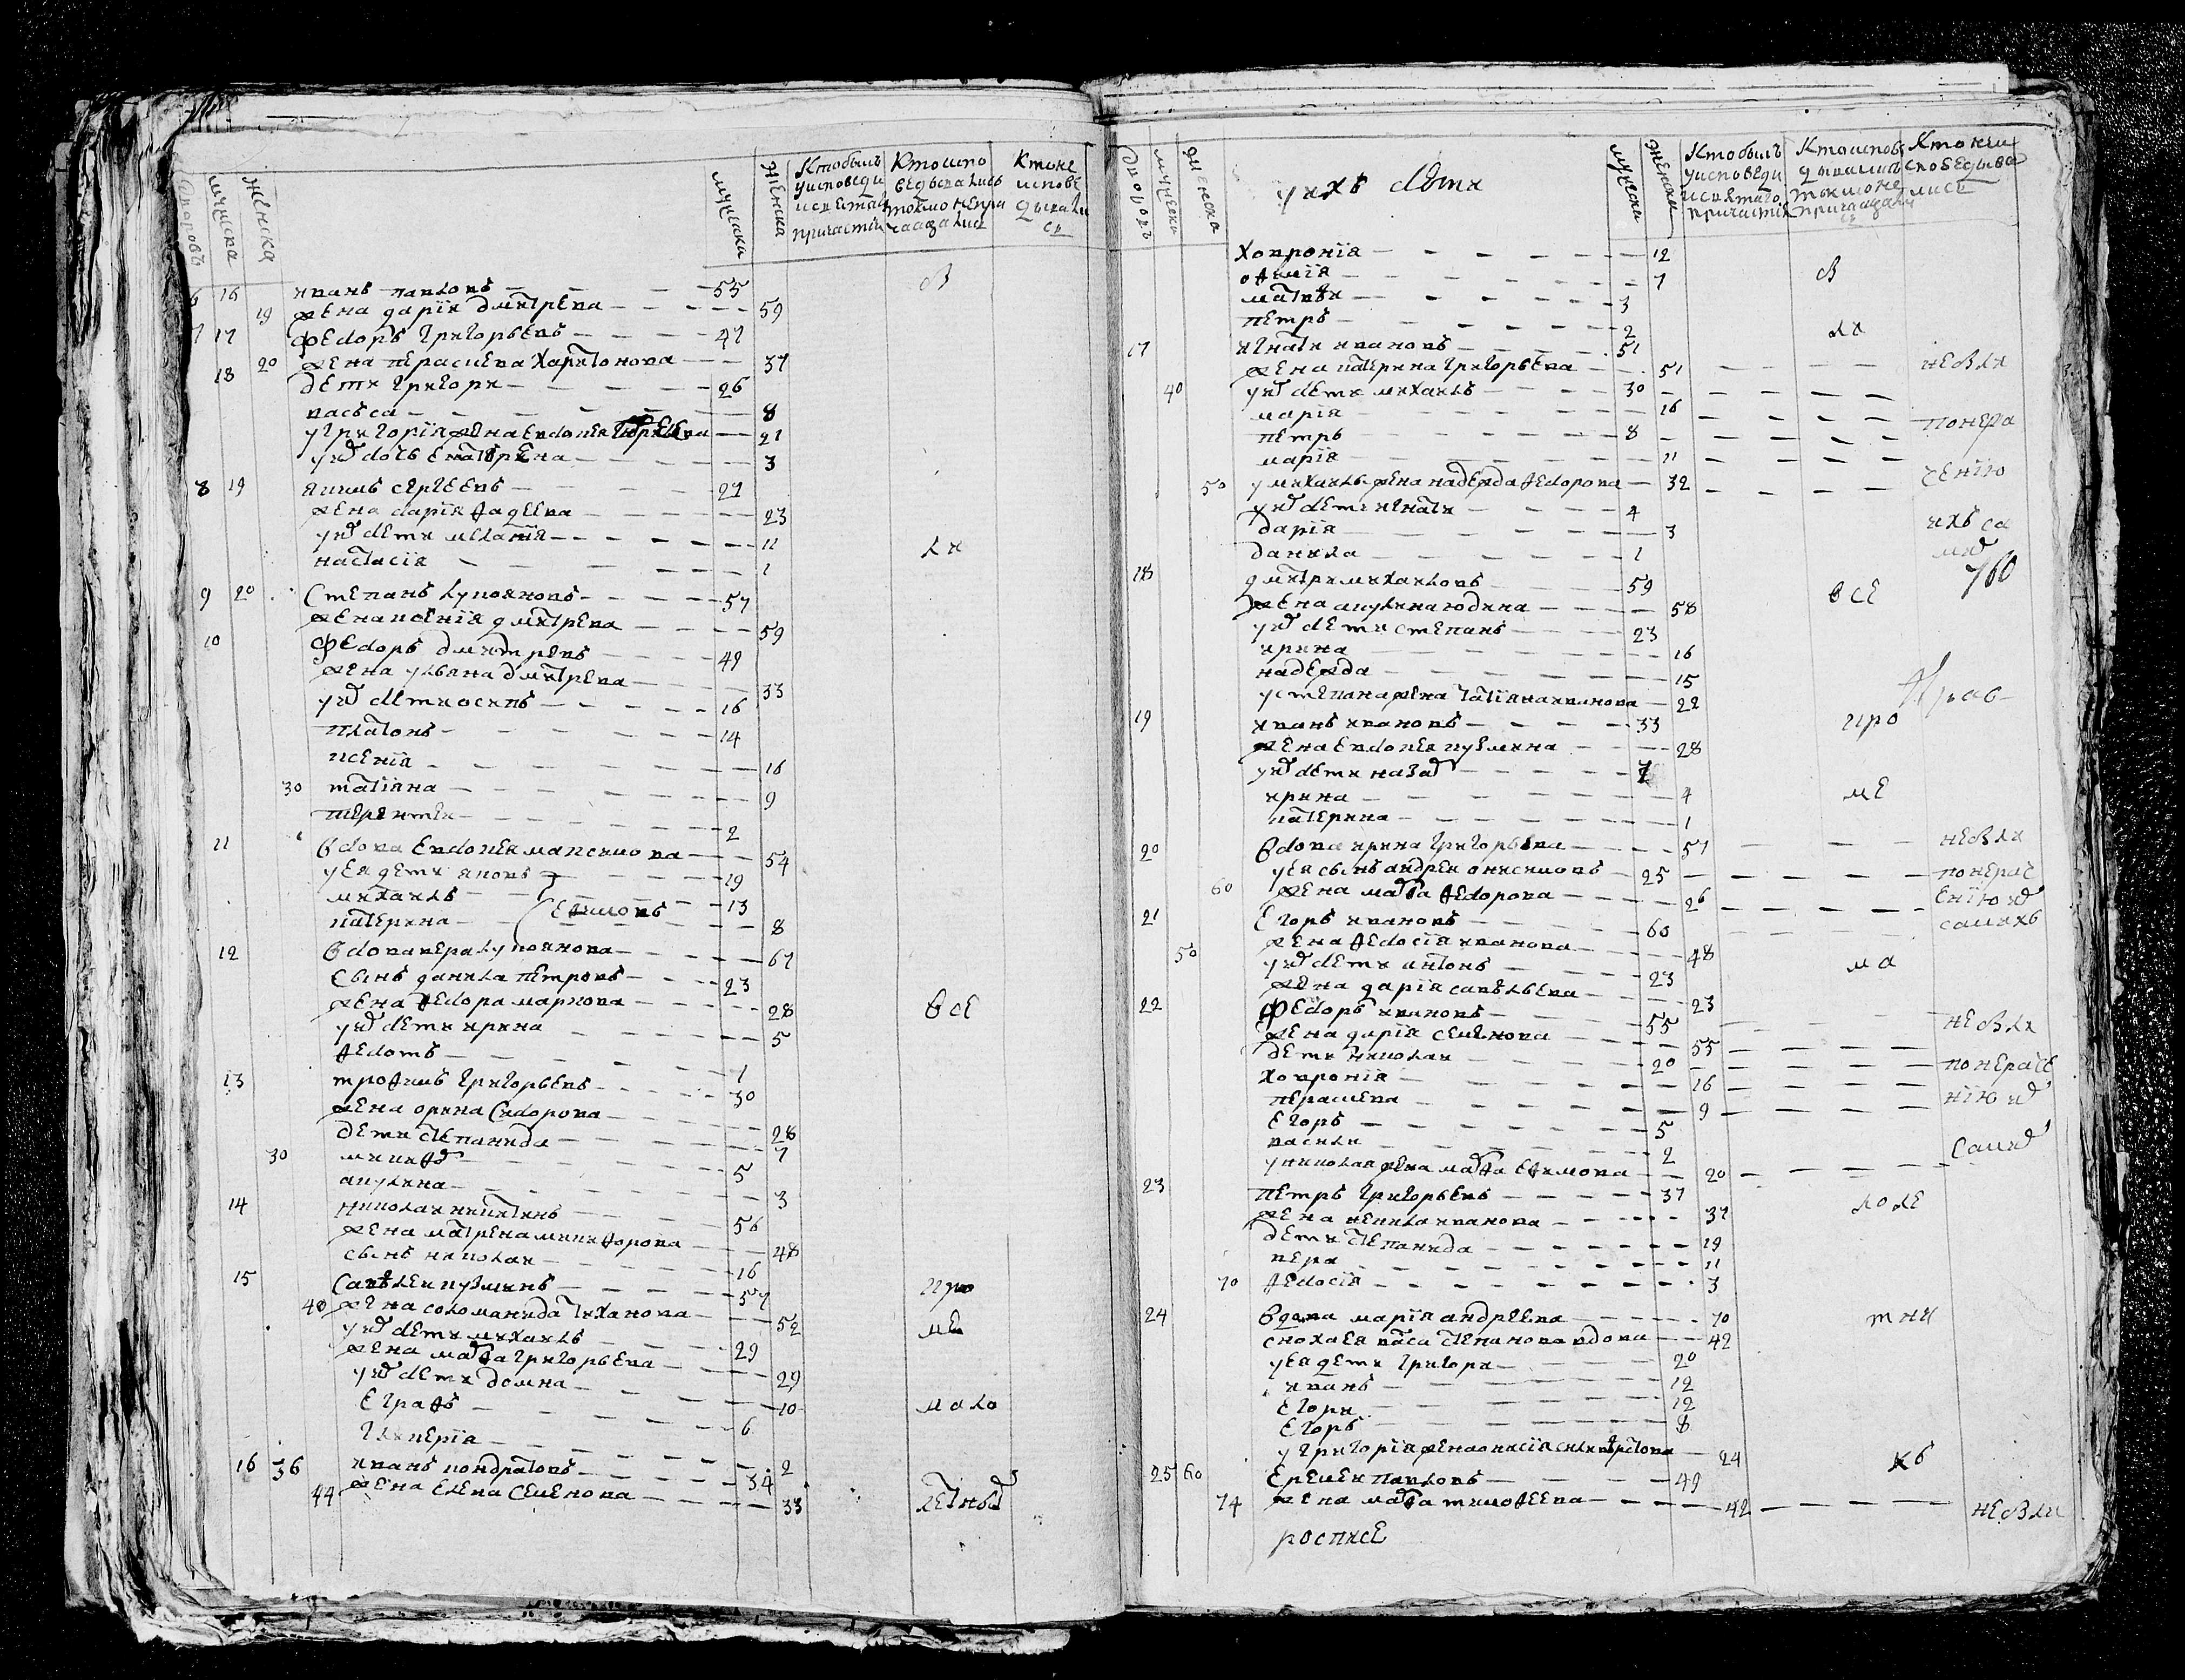 дворовъ
мужеска
женска
мужеска
женска
Кто былъ у исповеди и святаго причастїя
Кто исповедывались токмо не причащались
Кто не исповедывался
в
6 16 иванъ павловъ 55
19 жена дарїя дмитрева 59
7 17 Федоръ григорьевъ 47
20 жена парасцева харитонова 37
18 дети григори 26
васьса 8
у григорїя жена евдокея 21
у нихъ дочь екатерена 3
8 19 якимъ сергеевъ 27
жена дарїя фадеева 23
у нихъ дети меланїя 11
ли
настасїя 1
9 20 Степанъ лупояновъ 57
жена ксенїя дмитрева 59
10 Федоръ дмитревъ 49
жена ульяна дмитрева 33
у нихъ дети осипъ 16
платонъ 14
ксенїя 16
30 татїяна 9
терентеи 2
11 вдова евдокея максимова 54
у ея дети яковъ 19
михаилъ 13
ефимовъ
катерина 8
12 вдова вера лупоянова 67
сынъ данила петровъ 23
жена федора маркова 28
все
у нихъ дети ирина 5
федотъ 1
13 трофимъ григорьевъ 30
жена орина сидорова 28
дети степанида 7
30 никифоръ 5
акулина 3
14 николаи никитинъ 56
жена матрена никифорова 48
сынъ николаи 16
15 савелеи кузминъ 57
кро
40 жена соломанида тиханова 52
ме
у нихъ дети михаилъ 29
жена марфа григорьева 29
у нихъ дети домна 10
мало
еграфъ 6
гликерїя 2
16 36 иванъ кондратовъ 34
44 жена елена семенова 33
летныхъ
дворовъ
мужеска
женска
у ихъ дети
мужеска
женска
Кто былъ у исповеди и святаго причастїя
Кто исповедывались токмо не причащались
Кто не исповедывались
ховронїя 12
офимїя 7
в
матвеи 3
петръ 2
ли
17 игнати ивановъ 51
жена катерина григорьева 51
не были
40 у нихъ дети михаилъ 30
марїя 16
петръ 8
по нера
марїя 11
50 у михаилы жена надежда федорова 32
ченїю
у нихъ дети игнати 4
дарїя 3
ихъ са
данила 1
михъ
760
18 дмитри михаиловъ 59
все
жена акулина юдина 58
у нихъ дети степанъ 23
ирина 16
надежда 15
у степана жена татїяна иванова 22
19 иванъ ивановъ 33
кро
жена евдокея кузмина 28
у нихъ дети назаръ 7
ирина 4
ме
катерина 1
20 вдова ирина григорьева 57
не были
у ея сынъ андреи онисимовъ 25
по нерач
60 жена марфа федорова 26
енїю ихъ
21 Егоръ ивановъ 60
самихъ
жена федосїя иванова 48
50 у нихъ дети антонъ 23
ма
жена дарїя савельева 23
22 Федоръ ивановъ 55
жена дарїя семенова 55
не были
дети николаи 20
ховронїя 16
по нераче
перасцева 9
нїю ихъ
егоръ 5
васили 2
самихъ
у николая жена марфа ефимова 20
23 петръ григорьевъ 37
жена ненила иванова 37
лоле
дети степанида 19
вера 11
70 федосїя 3
24 вдова марїя андреева 70
тни
сноха ея васа степанова вдова 42
у ея дети григори 20
иванъ 12
егори 12
егоръ 8
у григорїя жена 24
хъ
25 60 еремеи павловъ 49
74 жена марфа тимофеева 42
не были
росписе